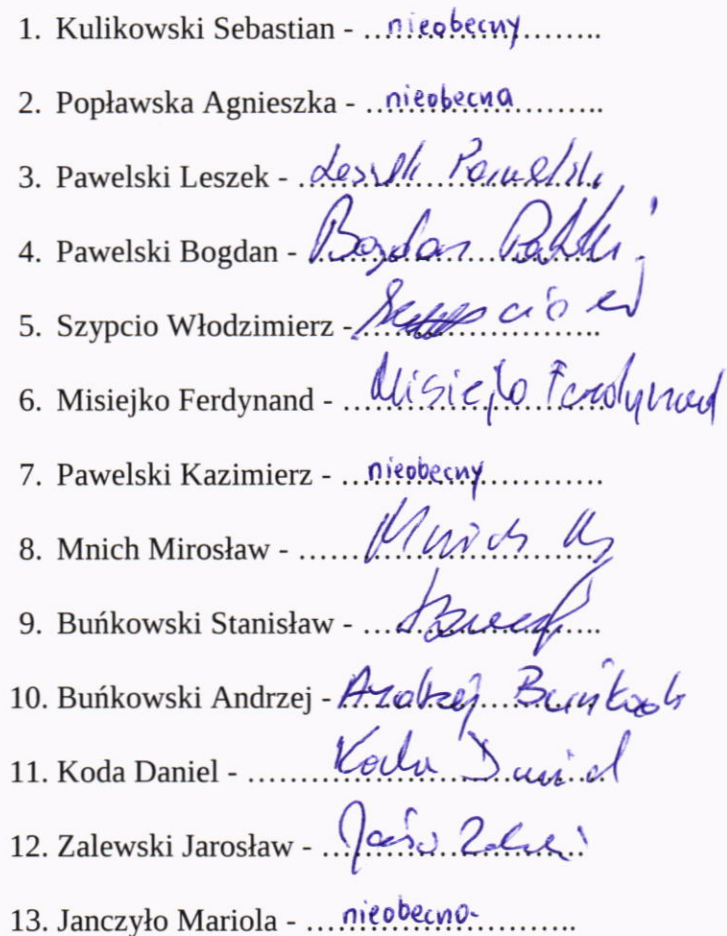 1. Kulikowski Sebastian - ...nieobecny........
2. Popławska Agnieszka - ...nieobecna..........
3. Pawelski Leszek - Leszek Pawelski
4. Pawelski Bogdan - Bogdan
5. Szypcio Włodzimierz -
6. Misiejko Ferdynand - ...Misiejko Ferdynand
7. Pawelski Kazimierz - ...nieobecny............
8. Mnich Mirosław - ......Mnich M
9. Buńkowski Stanisław - ...
10. Buńkowski Andrzej - Andrzej Buńkowski
11. Koda Daniel - ........Koda Daniel
12. Zalewski Jarosław - ...
13. Janczyło Mariola - ....nieobecna.........